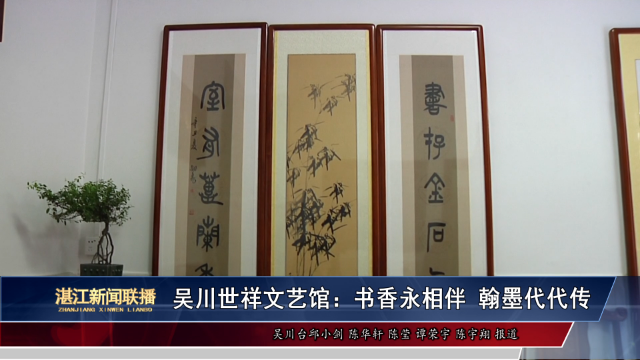 書存金石
室有蕙蘭
湛江新闻联播
ZHANJIANG XINWEN LIANBO
吴川世祥文艺馆：书香永相伴 翰墨代代传
吴川台邱小剑 陈华轩 陈莹 谭荣宇 陈宇翔 报道